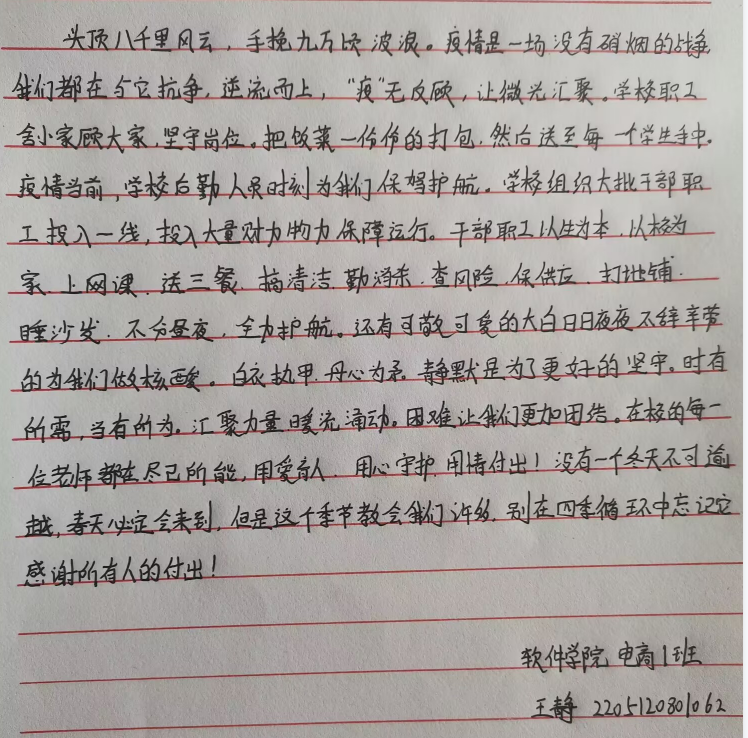 头顶八千里风云，手挽九万顷波浪。疫情是一场没有硝烟的战争，
我们都在与它抗争，逆流而上，“疫”无反顾，让微光汇聚。学校职工
舍小家顾大家，坚守岗位。把饭菜一份份的打包，然后送至每一个学生手中。
疫情当前，学校后勤人员时刻为我们保驾护航。学校组织大批干部职
工投入一线，投入大量财力物力保障运行。干部职工以生为本，以校为
家、上网课、送三餐、搞清洁、勤消杀、查风险、保供应、打地铺、
睡沙发、不分昼夜，全力护航。还有可敬可爱的大白日日夜夜不辞辛劳
的为我们做核酸。白衣执甲，丹心为柔，静默是为了更好的坚守。时有
所需，当有所为。汇聚力量暖流涌动。困难让我们更加团结。在校的每一
位老师都在尽己所能，用爱育人，用心守护，用情付出！没有一个冬天不可逾
越，春天必定会来到，但是这个季节教会我们许多，别在四季循环中忘记它
感谢所有人的付出！
软件学院 电商1班
王静 2205120801062